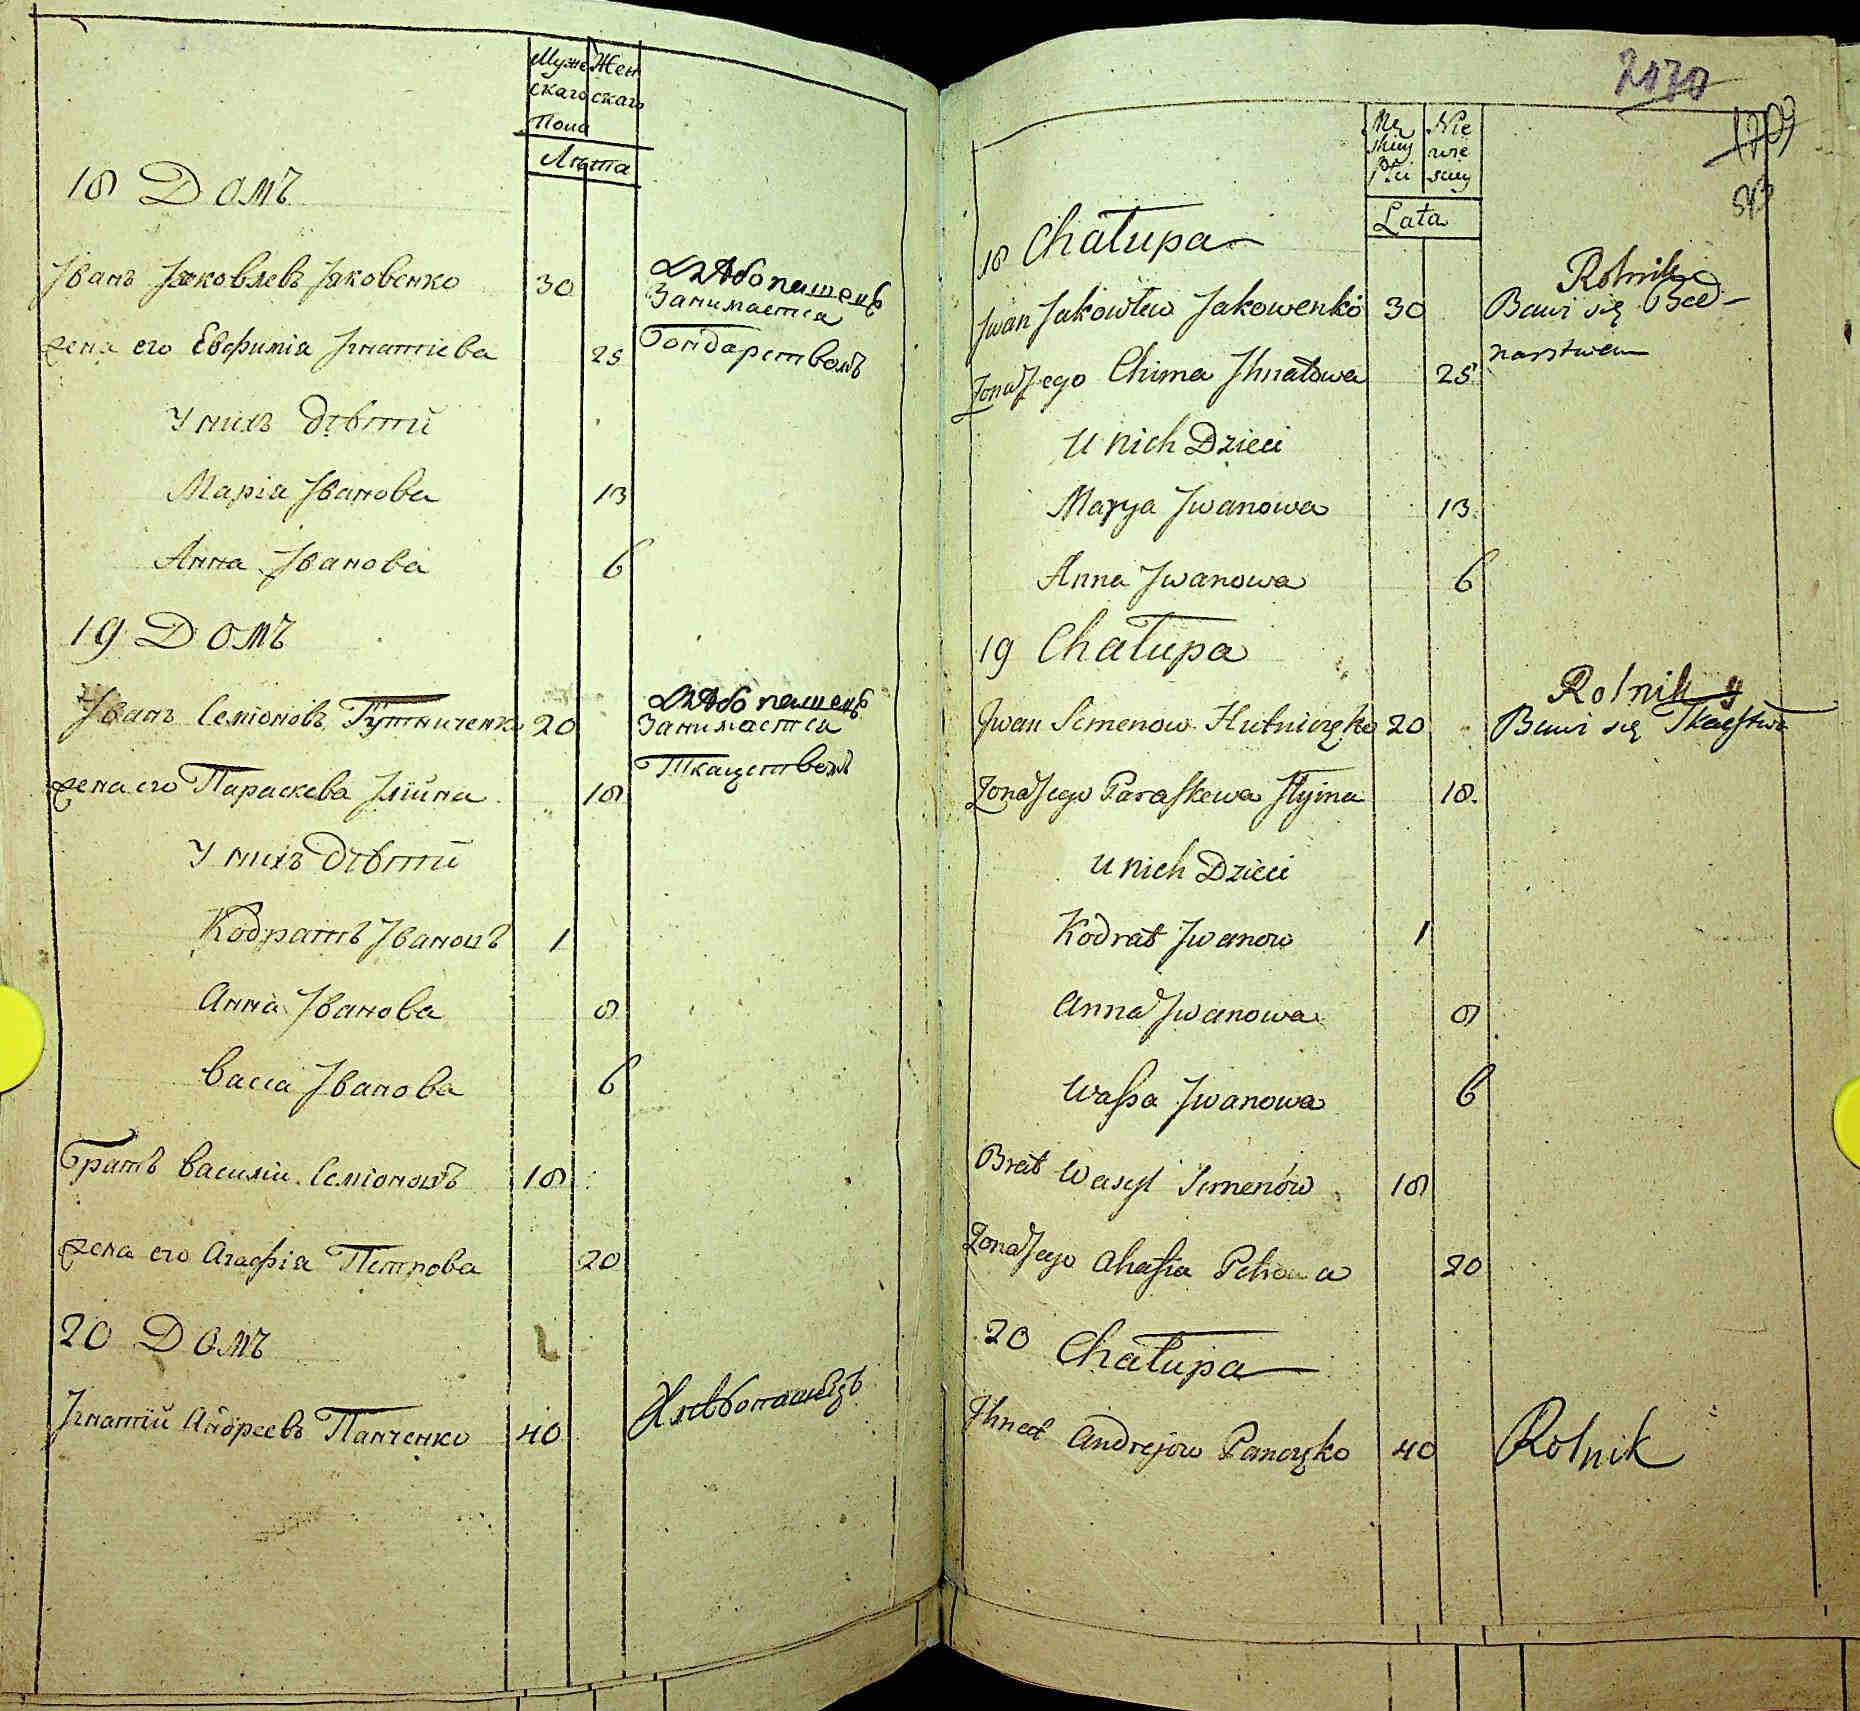 Муже Жен
скаго скаго
Пола
Лѣта
18 Домъ
Іванъ Іаковлевъ Іаковенко 30 Хлѣбопашецъ
Занимается
жена его Евфимія Ігнатіева 25 Бондарствомъ
У нихъ дѣтей
Марія Іванова 13
Анна Іванова 6
19 Домъ
Іванъ Семіоновъ Гутниченко 20 Хлѣбопашецъ
Занимается
Ткацтвомъ
жена его Параскева Іліина 18
У нихъ дѣтей
Кодратъ Івановъ 1
Анна Іванова 8
Васса Іванова 6
Братъ Василій Семіоновъ 18
жена его Агафія Петрова 20
20 Домъ
Ігнатій Андреевъ Панченко 40 Хлѣбопашецъ
2170
Mę Nie
skiey wie
Płci sciey
Lata
18 Chałupa
Iwan Jakowlew Jakowenko 30 Rolnik
Bawi się Bed-
narstwem
Żona Jego Chima Ihnatowa 25
U nich Dzieci
Marya Iwanowa 13
Anna Iwanowa 6
19 Chałupa
Iwan Semenow Hutniczęko 20 Rolnik y
Bawi się Tkactwe
Żona Jego Paraskewa Ilyina 18.
U nich Dzieci
Kodrat Iwanow 1
Anna Iwanowa 8
Wassa Iwanowa 6
Brat Wasyl Semenów 18
Żona Jego Ahafia Petrowa 20
20 Chałupa
Ihnat Andrejow Panczęko 40 Rolnik